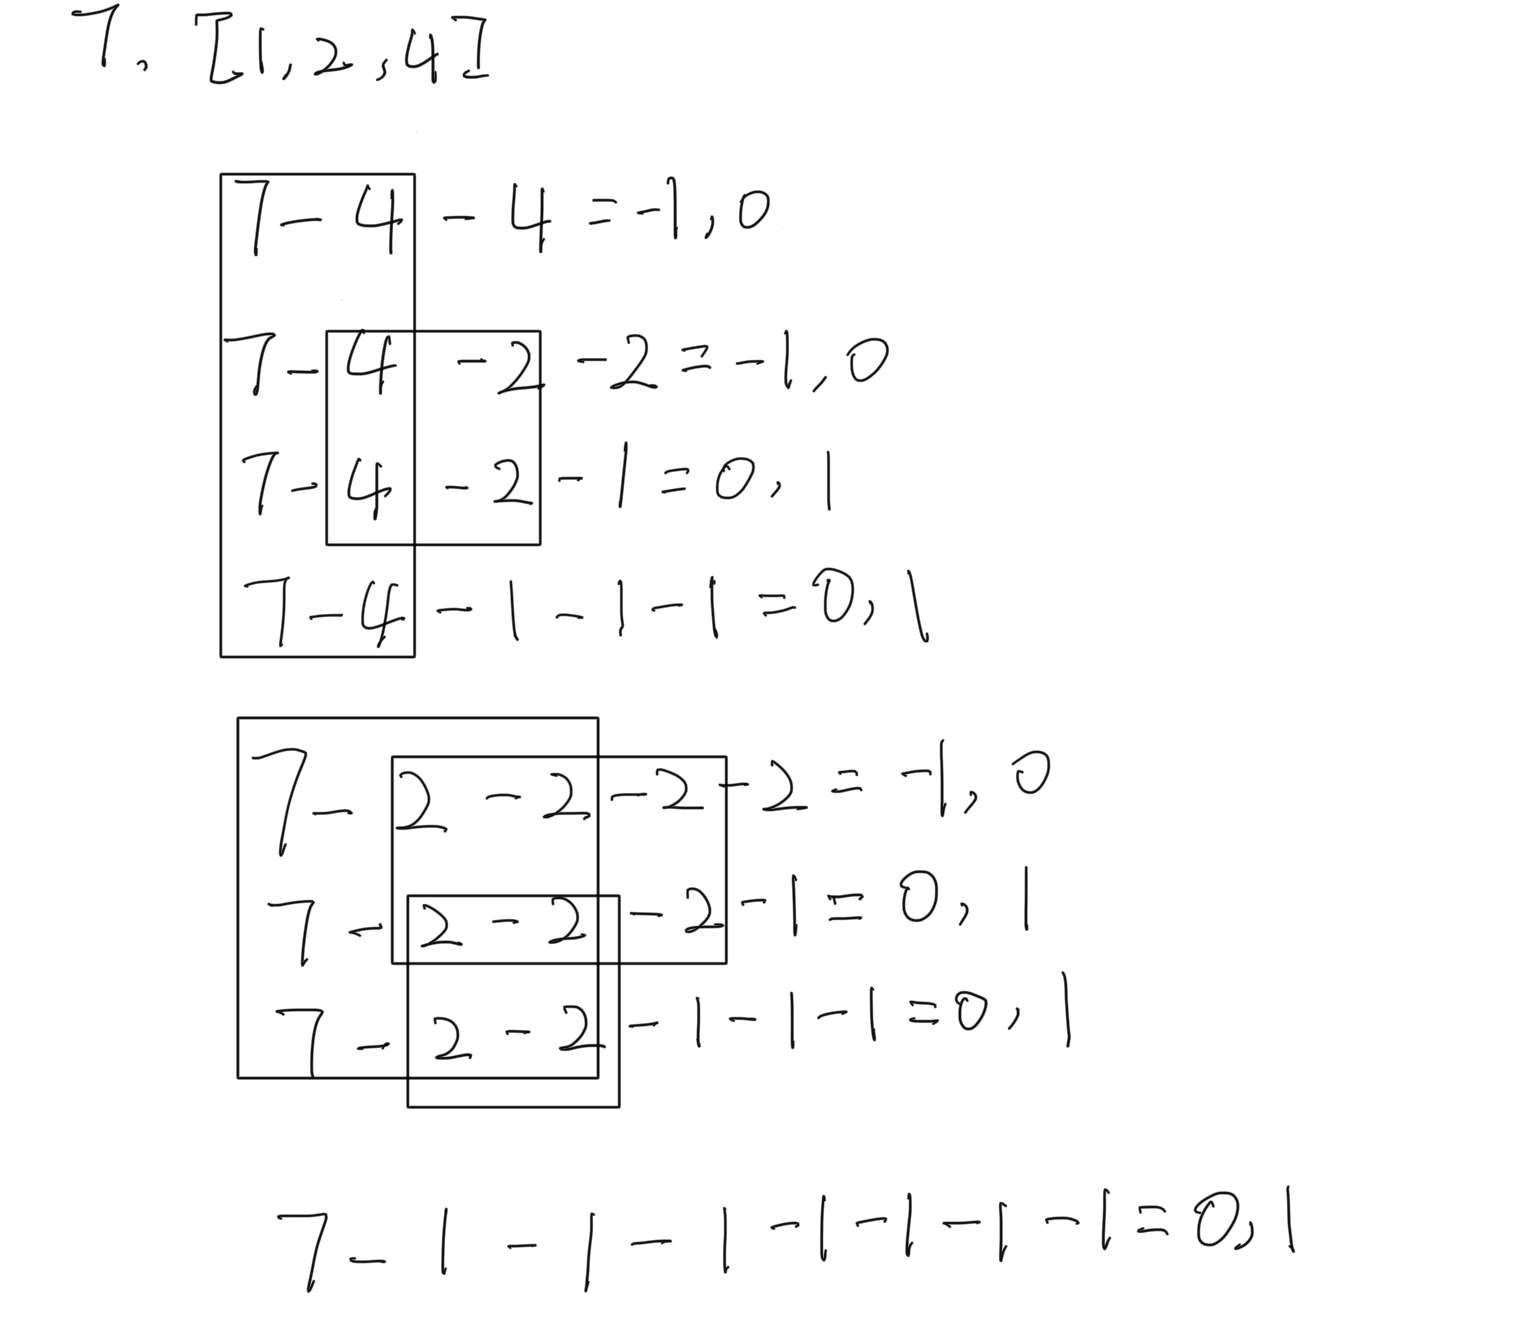 7, [1,2,4]
7-4-4=-1,0
7-4-2-2=-1,0
7-4-2-1=0,1
7-4-1-1-1=0,1
7-2-2-2-2=-1,0
7-2-2-2-1=0,1
7-2-2-1-1-1=0,1
7-1-1-1-1-1-1-1=0,1